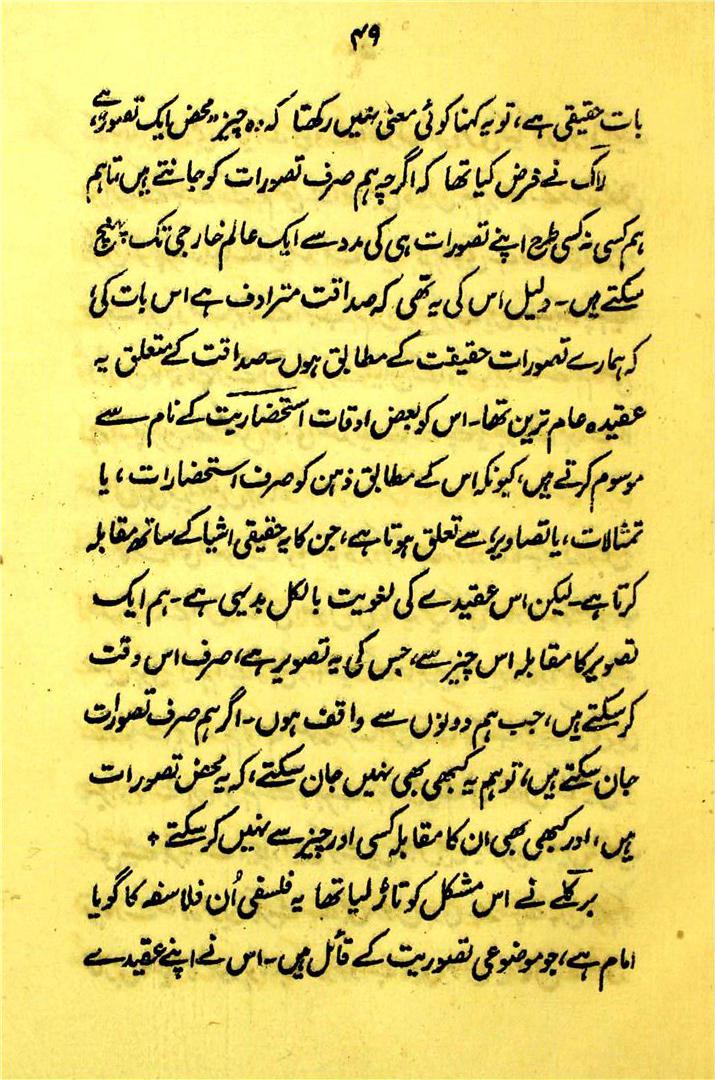 ۴۹
بات حقیقی ہے، تو یہ کہنا کوئی معنٰی نہیں رکھتا کہ وہ چیز "محض ایک تصور" ہے،
لاک نے فرض کیا تھا کہ اگرچہ ہم صرف تصورات کو جانتے ہیں، تاہم
ہم کسی نہ کسی طرح اپنے تصورات ہی کی مدد سے ایک عالم خارجی تک پہنچ
سکتے ہیں۔ دلیل اس کی یہ تھی کہ صداقت مترادف ہے اس بات کی
کہ ہمارے تصورات حقیقت کے مطابق ہوں۔ صداقت کے متعلق یہ
عقیدہ عام ترین تھا۔ اس کو بعض اوقات استحضاریت کے نام سے
موسوم کرتے ہیں، کیونکہ اس کے مطابق ذہن کو صرف استحضارات، یا
تمثالات، یا تصاویر، سے تعلق ہوتا ہے، جن کا یہ حقیقی اشیا کے ساتھ مقابلہ
کرتا ہے۔ لیکن اس عقیدے کی لغویت بالکل بدیہی ہے۔ ہم ایک
تصویر کا مقابلہ اس چیز سے، جس کی یہ تصویر ہے، صرف اس وقت
کرسکتے ہیں، جب ہم دونوں سے واقف ہوں۔ اگر ہم صرف تصورات
جان سکتے ہیں، تو ہم یہ کبھی بھی نہیں جان سکتے، کہ یہ محض تصورات
ہیں، اور کبھی بھی ان کا مقابلہ کسی اور چیز سے نہیں کرسکتے +
برکلے نے اس مشکل کو تاڑ لیا تھا یہ فلسفی اُن فلاسفہ کا گویا
امام ہے، جو موضوعی تصوریت کے قائل ہیں۔ اس نے اپنے عقیدے